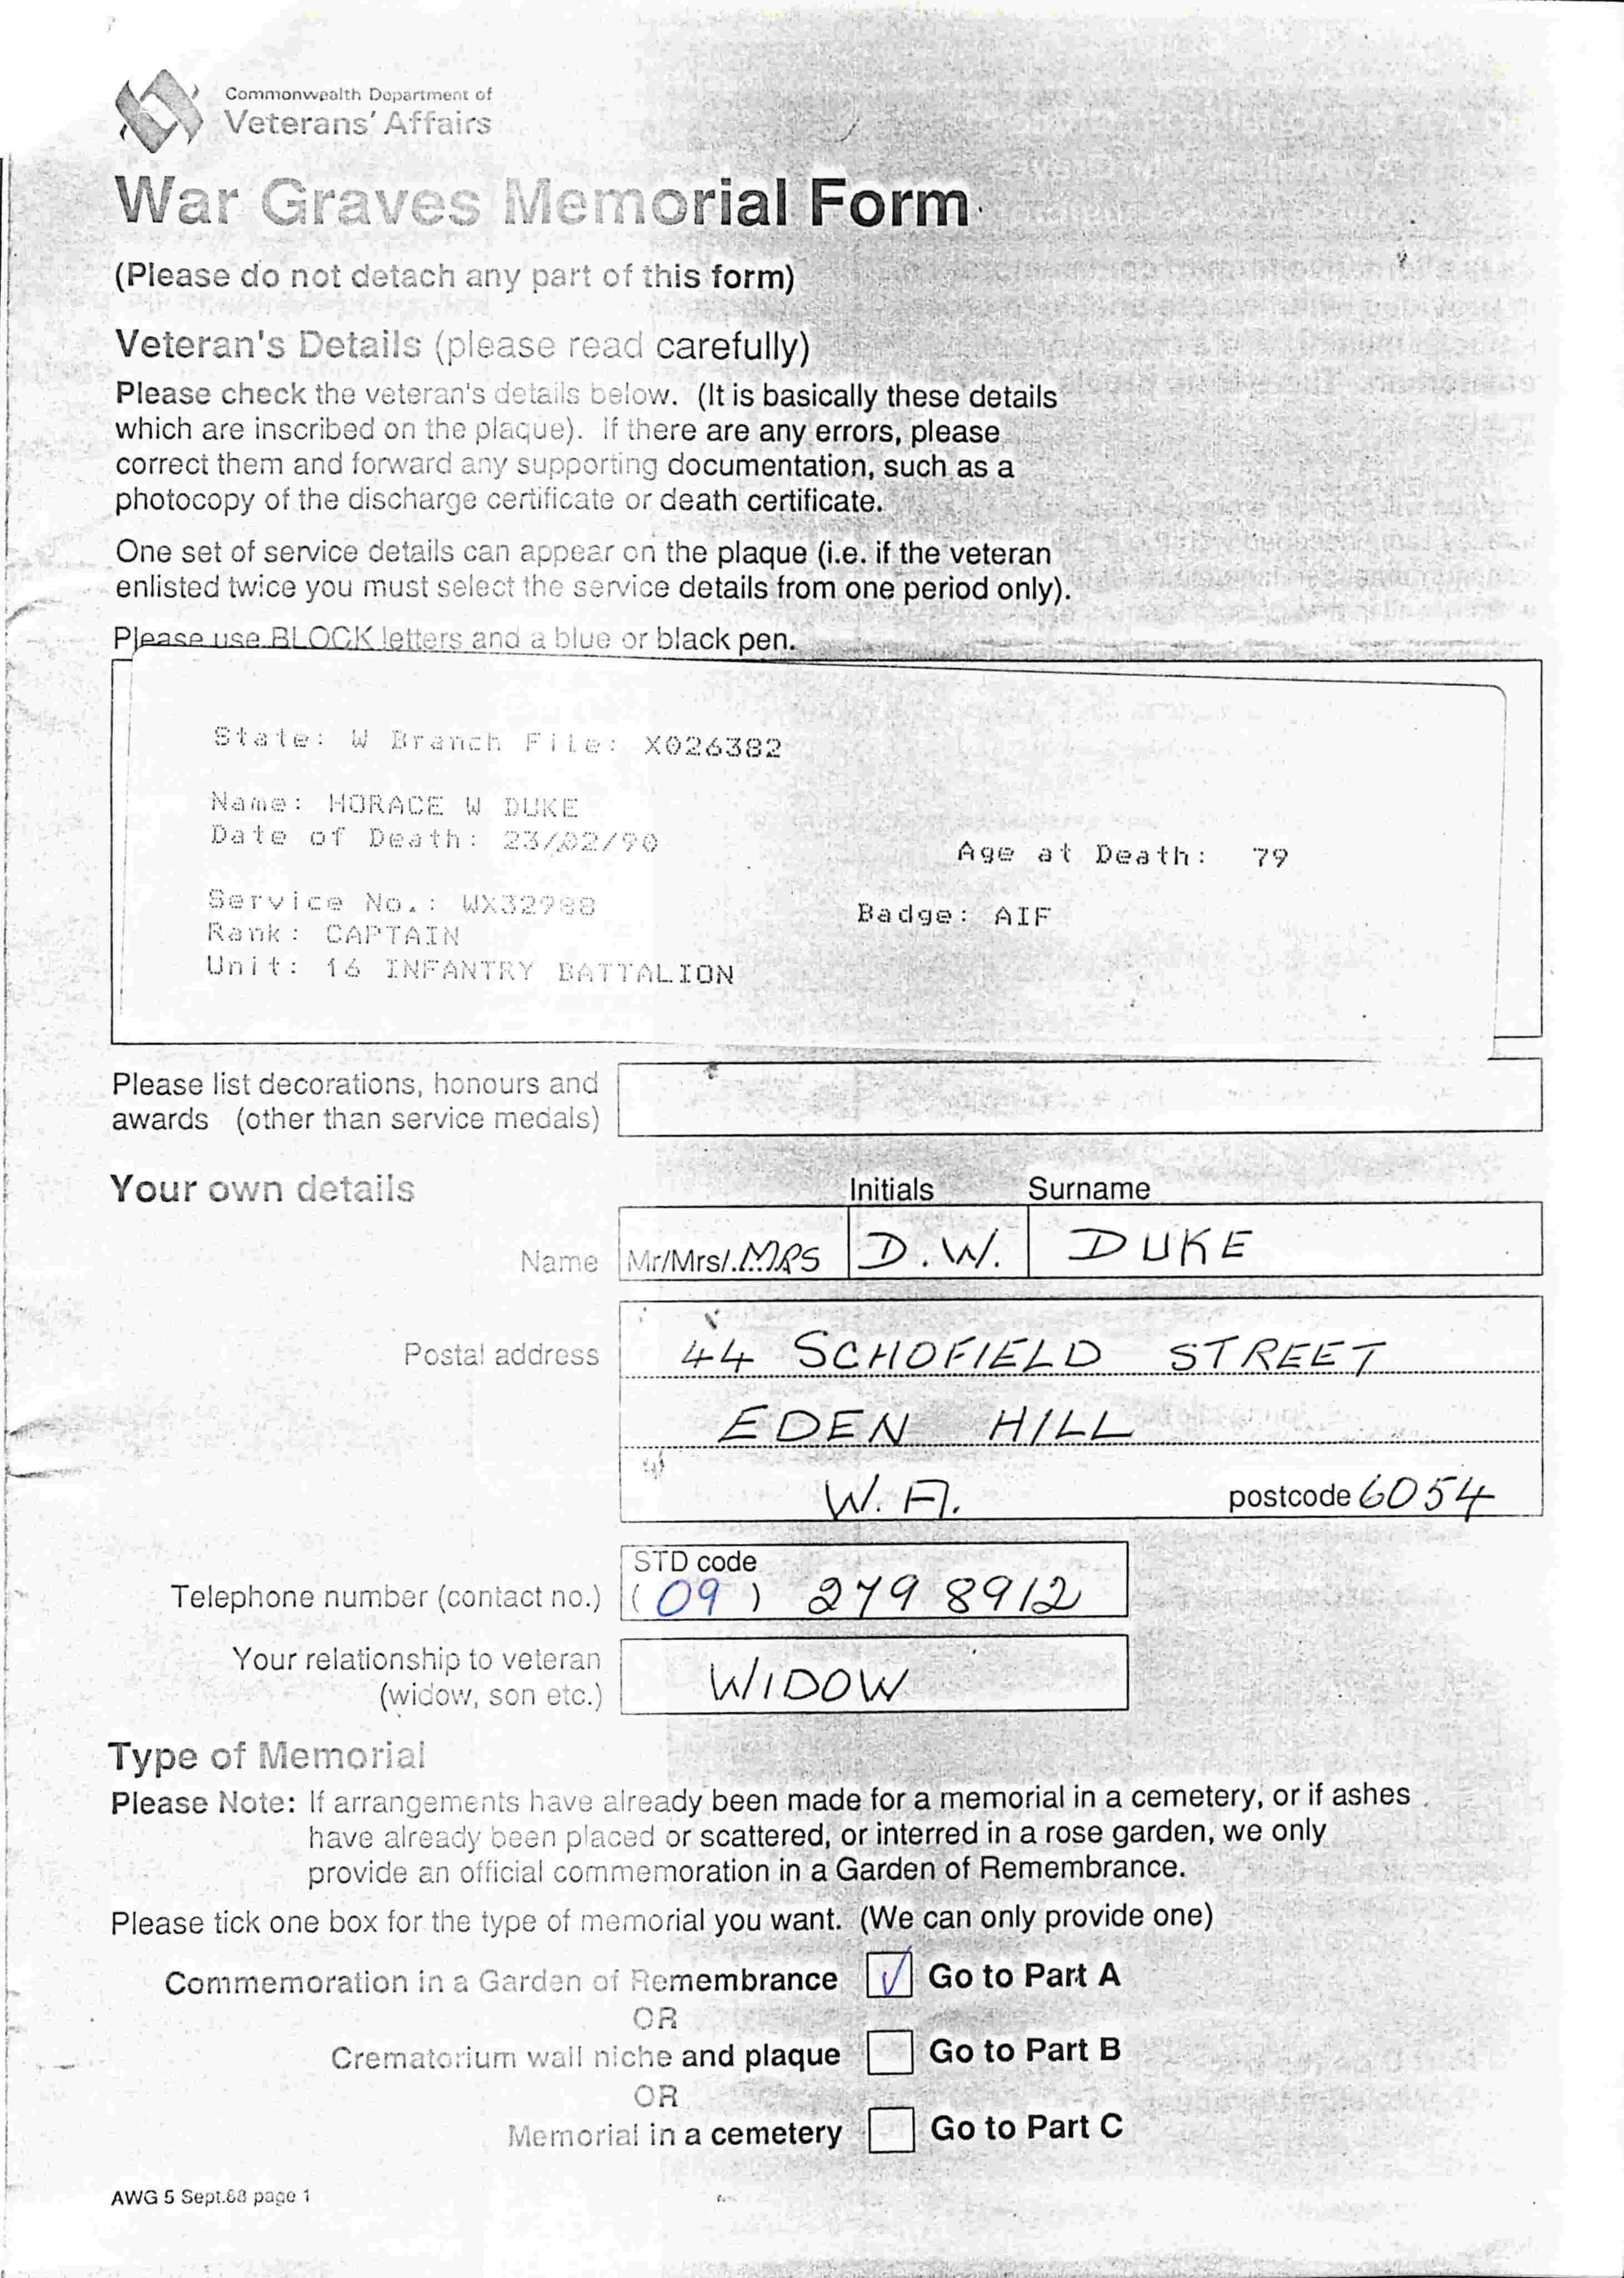 Commonwealth Department of
Veterans' Affairs
War Graves Memorial Form
(Please do not detach any part of this form)
Veteran's Details (please read carefully)
Please check the veteran's details below. (It is basically these details
which are inscribed on the plaque). If there are any errors, please
correct them and forward any supporting documentation, such as a
photocopy of the discharge certificate or death certificate.
One set of service details can appear on the plaque (i.e. if the veteran
enlisted twice you must select the service details from one period only).
Please use BLOCK letters and a blue or black pen.
State: W Branch File: X026382
Name: HORACE W DUKE
Date of Death: 23/02/90
Age at Death: 79
Service No.: WX32988
Badge: AIF
Rank: CAPTAIN
Unit: 16 INFANTRY BATTALION
Please list decorations, honours and
awards (other than service medals)
Your own details
Initials Surname
Name Mr/Mrs/.MRS D.W. DUKE
Postal address 44 SCHOFIELD STREET
EDEN HILL
W.A. postcode 6054
STD code
Telephone number (contact no.) (09) 279 8912
Your relationship to veteran
(widow, son etc.) WIDOW
Type of Memorial
Please Note: If arrangements have already been made for a memorial in a cemetery, or if ashes
have already been placed or scattered, or interred in a rose garden, we only
provide an official commemoration in a Garden of Remembrance.
Please tick one box for the type of memorial you want. (We can only provide one)
Commemoration in a Garden of Remembrance ✓ Go to Part A
OR
Crematorium wall niche and plaque Go to Part B
OR
Memorial in a cemetery Go to Part C
AWG 5 Sept.88 page 1